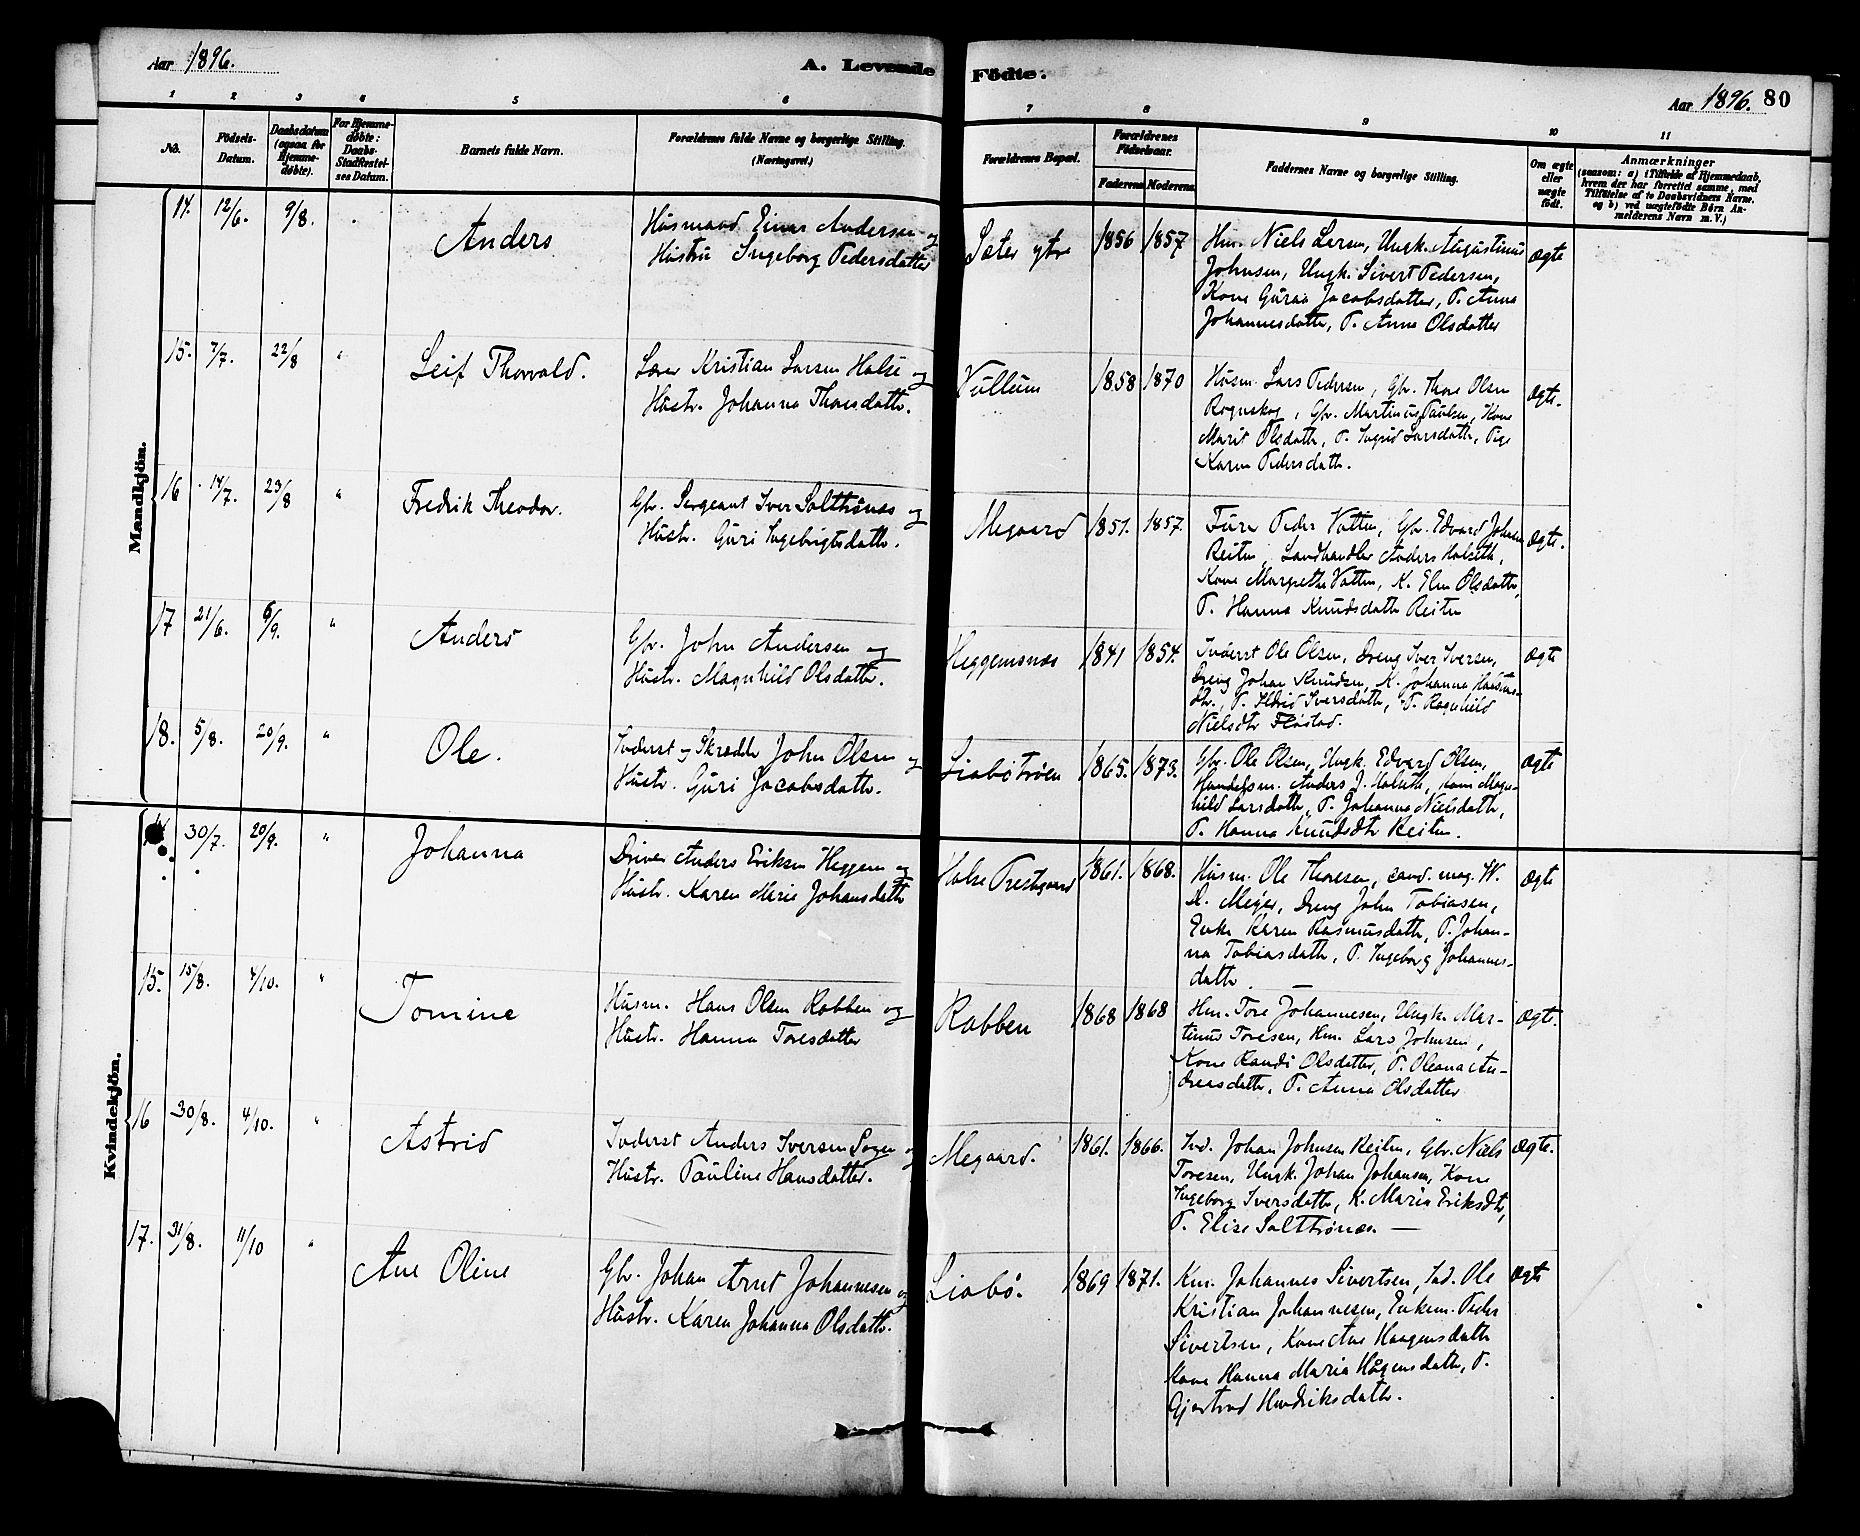 Aar 1896.
A. Levende Födte.
Aar 1896. 80
1 2 3 4 5 6 7 8 9 10 11
No.
Födsels-
Datum.
Daabsdatum
(ogsaa for
Hjemme-
døbte).
For Hjemme-
døbte:
Daabs-
Stadfæstel-
ses Datum.
Barnets fulde Navn.
Forældrenes fulde Navne og borgerlige Stilling.
(Næringsvei.)
Forældrenes Bopæl.
Forældrenes
Födselsaar.
Faderens Moderens
Faddernes Navne og borgerlige Stilling.
Om ægte
eller
uægte
født.
Anmærkninger
(saasom: a) i Tilfælde af Hjemmedaab,
hvem der har forrettet samme, med
Tilføielse af to Daabsvidners Navne.
og b) ved uægtefødte Børn An-
melderens Navn m. V.)
Mandkjön.
14. 12/6. 9/8.
Anders
Husmand Einar Andersen og
Hustru Ingeborg Pedersdatter
Sæter ytre 1856 1857
Hm. Niels Larsen, Ungk. Augustinus
Johnsen, Ungk. Sivert Pedersen,
Kone Guraa Jacobsdatter, P. Anna
Johannesdatter, P. Anne Olsdatter
Ægte
15. 7/7. 22/8 "
Leif Thorvald.
Lærer Kristian Larsen Halse og
Hustr. Johanna Thoresdattr.
Vullum 1858 1870
Husm. Lars Pedersen, Gbr. Thore Olsen
Rognskog, Gbr. Martinus Paulsen, Kone
Marit Olsdattr, P. Ingrid Larsdattr, Pige
Karen Pedersdattr.
Ægte.
16 14/7. 23/8 "
Fredrik Theodor.
Gbr. Sergeant Iver Salthrønæs og
Hustr. Guri Ingebrigtsdattr.
Megaard 1851. 1857.
Furer Peder Vatten, Gbr. Edvard Johnsen
Reiten, Landhandler Anders Halseth,
Kone Margrethe Vatten, K. Elen Olsdattr,
P. Hanna Knudsdattr Reiten
Ægte.
17 21/6. 6/9. "
Anders
Gbr. John Andersen og
Hustr. Magnhild Olsdattr.
Heggemsnæs 1841 1854.
Inderst Ole Olsen, Dreng Iver Iversen,
Dreng Johan Knudsen, K. Johanna Hansens-
dtr., P. Ildrid Iversdattr, P. Ragnhild
Nielsdtr Fløstad.
Ægte
18. 5/8. 20/9. "
Ole.
Inderst og Skrædder John Olsen og
Hustr. Guri Jacobsdattr.
Liabøtrøen 1865. 1873.
Gbr. Ole Olsen, Ungk. Edvard Olsen,
Handelsm. Anders J. Halseth, Kone Magn-
hild Larsdattr, P. Johanna Nielsdattr,
P. Hanna Knudsdtr Reiten.
Ægte
Kvindekjön.
30/7. 20/9. "
Johanna
Driver Anders Eriksen Heggem og
Hustr. Karen Marie Johansdattr
Halse Prestgaard 1861. 1868.
Husm. Ole Thoresen, cand. mag. W.
D. Meyer, Dreng John Tobiasen,
Enke Karen Rasmusdattr, P. Johan-
na Tobiasdattr, P. Ingeborg Johannes-
dattr.
Ægte
15. 15/8. 4/10. "
Tomine
Husm. Hans Olsen Rabben og
Hustr. Hanna Toresdatter
Rabben 1868 1868
Hm. Tore Johannesen, Ungk. Mar-
tinus Toresen, Hm. Lars Johnsen,
Kone Randi Olsdatter, P. Oleana An-
dreasdatter, P. Anna Olsdatter
Ægte.
16 30/8. 4/10. "
Astrid
Inderst Anders Iversen Sogge og
Hustr. Pauline Hansdatter.
Megaard. 1861. 1866.
Ind. Johan Johnsen Reiten, Gbr. Niels
Toresen, Ungk. Johan Johansen, Kone
Ingeborg Iversdattr, K. Maria Eriksdtr,
P. Elise Salthrønæs —
Ægte.
17. 31/8. 11/10 "
Ane Oline
Gbr. Johan Arnt Johannesen og
Hustr. Karen Johanna Olsdattr.
Liabø. 1869 1871.
Km. Johannes Sivertsen, Ind. Ole
Kristian Johannesen, Enkem. Peder
Sivertsen, Kone Ane Haagensdattr
Kone Hanna Maria Hågensdattr, P.
Gjertrud Hendriksdattr.
Ægte